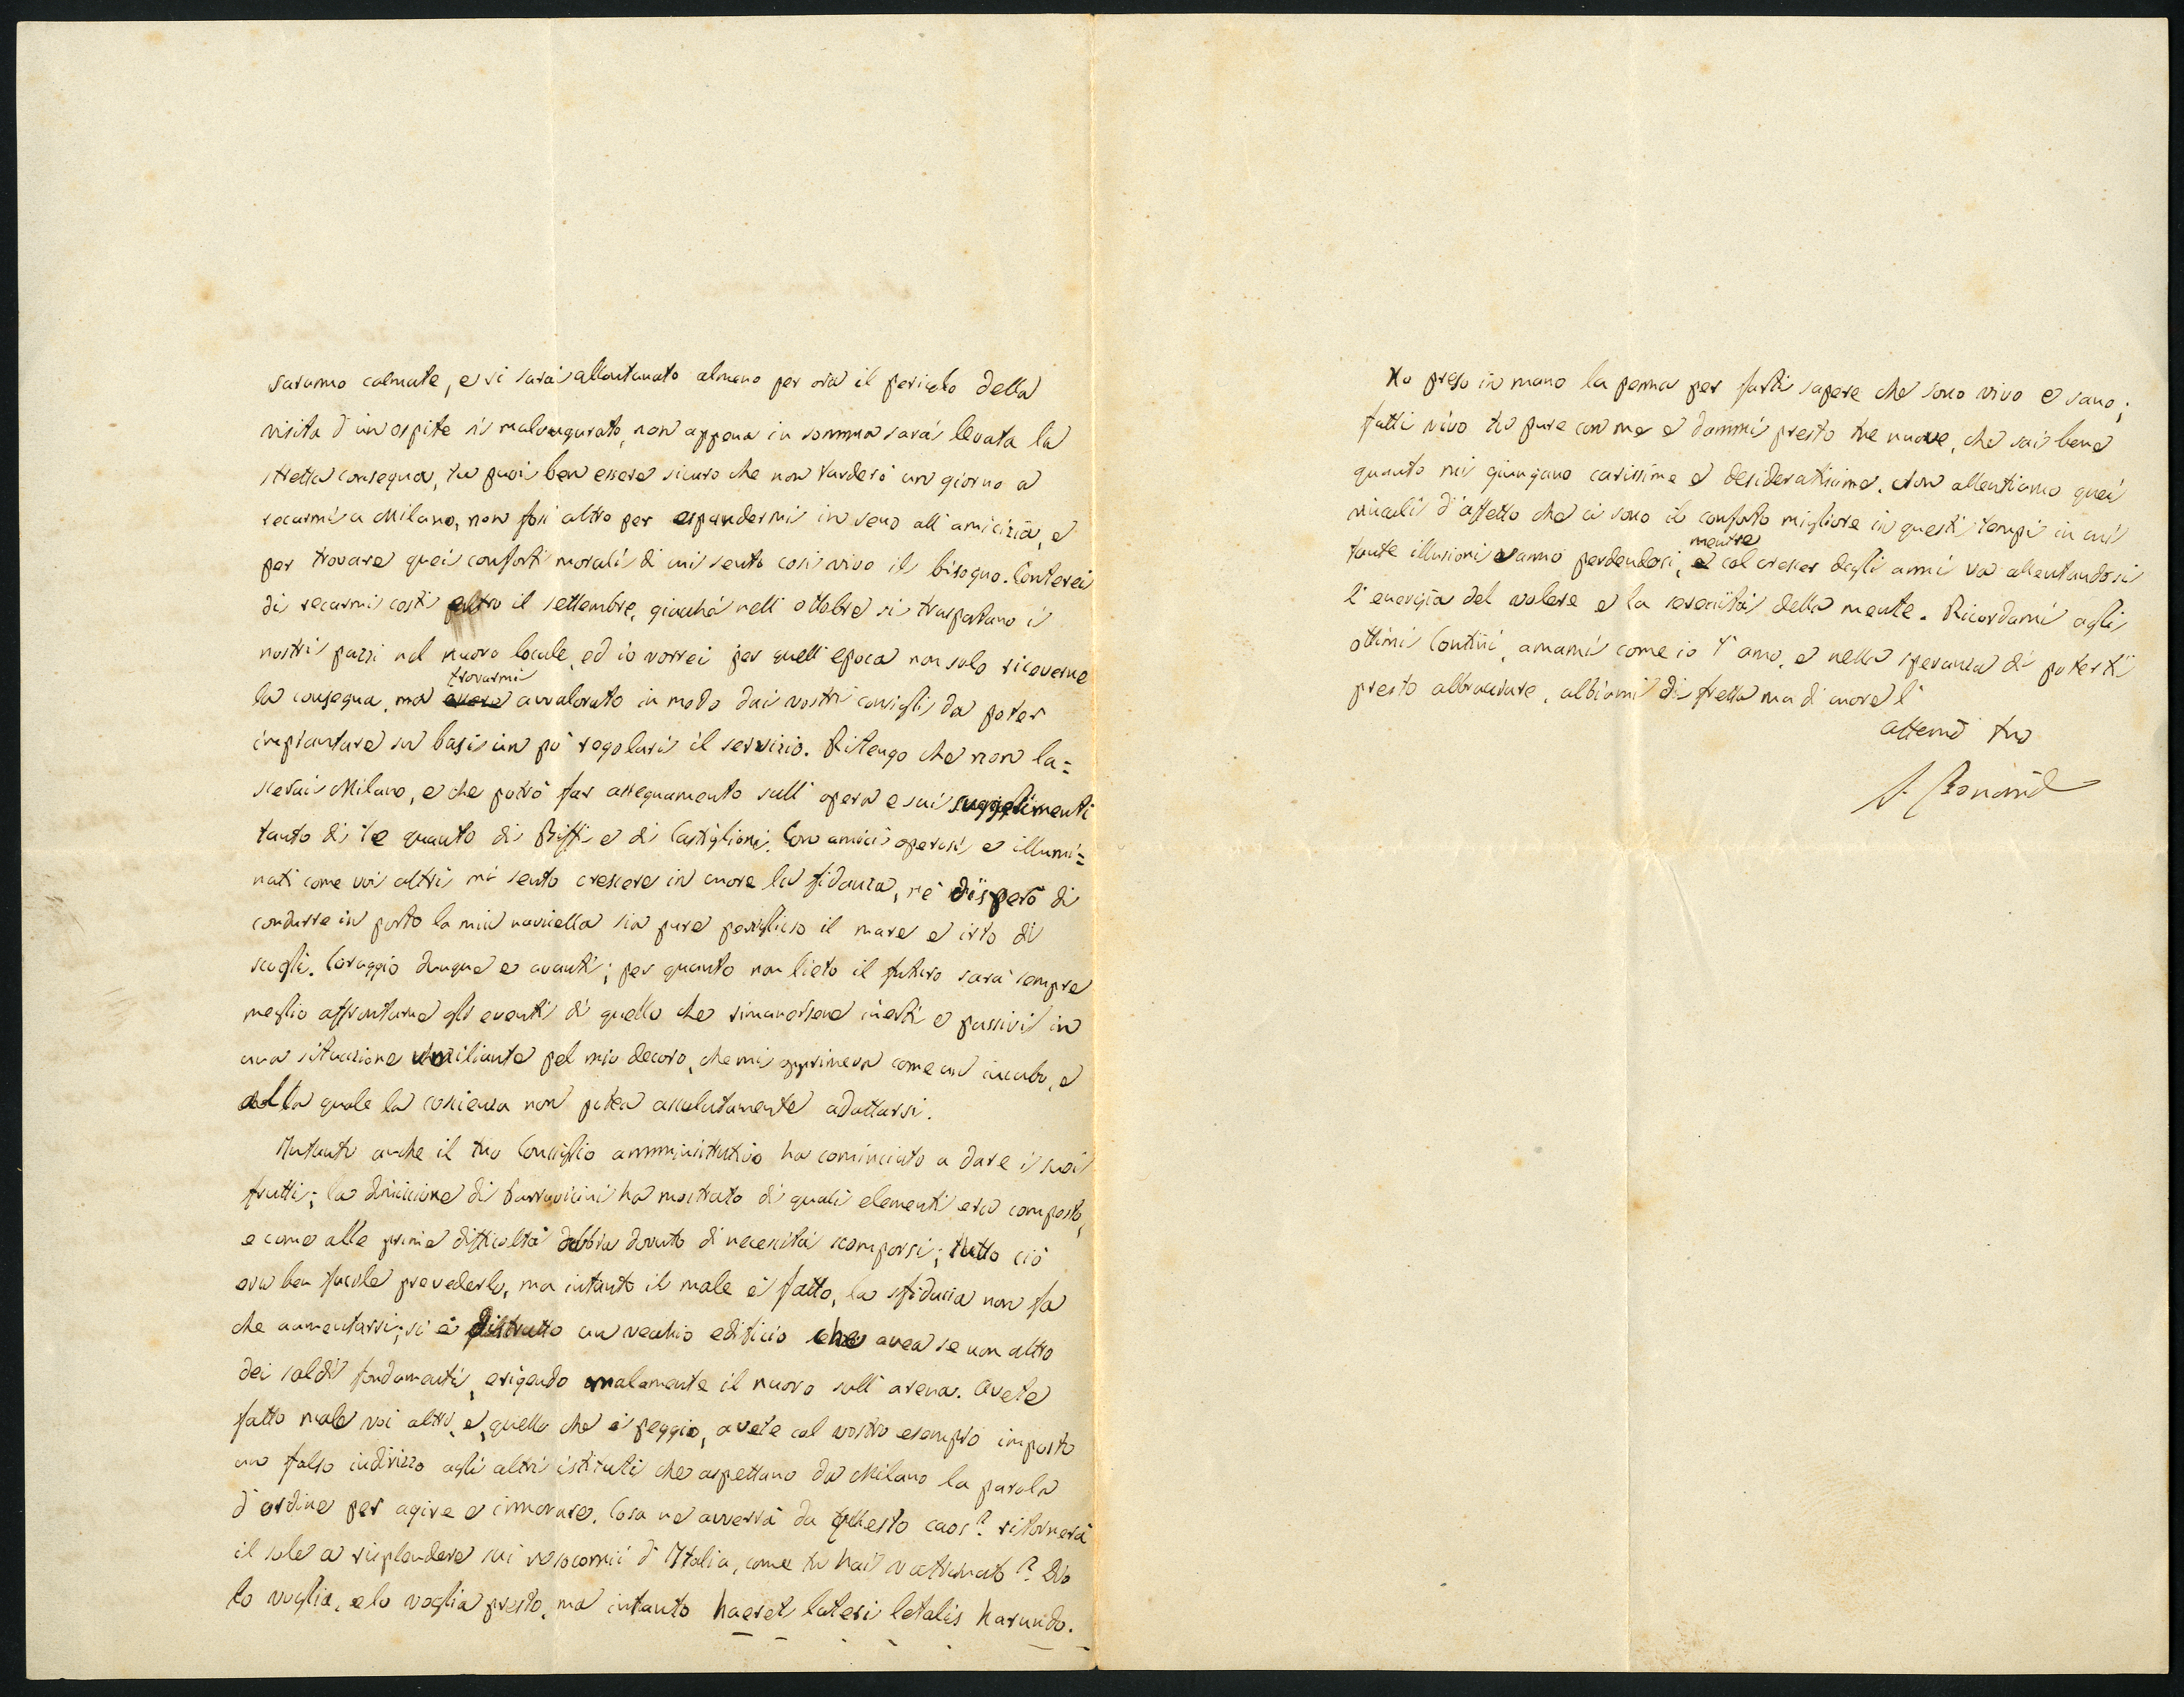 saranno calmate, e si sarà allontanato almeno per ora il pericolo della
visita d'un ospite sì malaugurato, non appena in somma sarà levata la
stretta consegna, tu puoi ben essere sicuro che non tarderò un giorno a
recarmi a Milano, non fosse altro per espandermi in seno all'amicizia, e
per trovare quei conforti morali di cui sento così vivo il bisogno. Conterei
di recarmi costì entro il settembre, giacchè nell'ottobre si trasportano i
nostri pazzi nel nuovo locale, ed io vorrei per quell'epoca non solo riceverne
la consegna, ma trovarmi avvalorato in modo dai vostri consigli da poter
impiantare su basi un po' regolari il servizio. Ritengo che non la=
scerai Milano, e che potrò far assegnamento sull'opera e sui suggerimenti
tanto di te quanto di Biffi e di Castiglioni. Con amici operosi e illumi=
nati come voi altri mi sento crescere in cuore la fidanza, nè dispero di
condurre in porto la mia navicella sia pure periglioso il mare e irto di
scogli. Coraggio dunque e avanti; per quanto non lieto il futuro sarà sempre
meglio affrontarne gli eventi di quello che rimanersene inerti e passivi in
una situazione umiliante pel mio decoro, che mi opprimeva come un incubo, e
alla quale la coscienza non potea assolutamente adattarsi.
Intanto anche il tuo Consiglio amministrativo ha cominciato a dare i suoi
frutti; la dimissione di Parravicini ha mostrato di quali elementi era composto,
e come alle prime difficoltà debba dovuto di necessità scomporsi; tutto ciò
era ben facile prevederlo, ma intanto il male è fatto, la sfiducia non fa
che aumentarsi; si è distrutto un vecchio edificio che avea se non altro
dei saldi fondamenti, erigendo malamente il nuovo sull'arena. Avete
fatto male voi altri, e, quello che è peggio, avete col vostro esempio imposto
un falso indirizzo agli altri istituti che aspettano da Milano la parola
d'ordine per agire e innovare. Cosa ne avverrà da questo caos? ritornerà
il sole a risplendere sui nosocomii d'Italia, come tu hai vaticinato? Dio
lo voglia, e lo voglia presto, ma intanto haeret lateri letalis harundo.
Ho preso in mano la penna per farti sapere che sono vivo e sano;
fatti vivo tu pure con me e dammi presto tue nuove, che sai bene
quanto mi giungano carissime e desideratissime. Non allentiamo quei
vincoli d'affetto che ci sono il conforto migliore in questi tempi in cui
tante illusioni vanno perdendosi, mentre col crescer degli anni va allentandosi
l'energia del volere e la serenità della mente. Ricordami agli
ottimi Contini, amami come io t'amo, e nella speranza di poterti
presto abbracciare, abbiami di fretta ma di cuore l'
aff.mo tuo